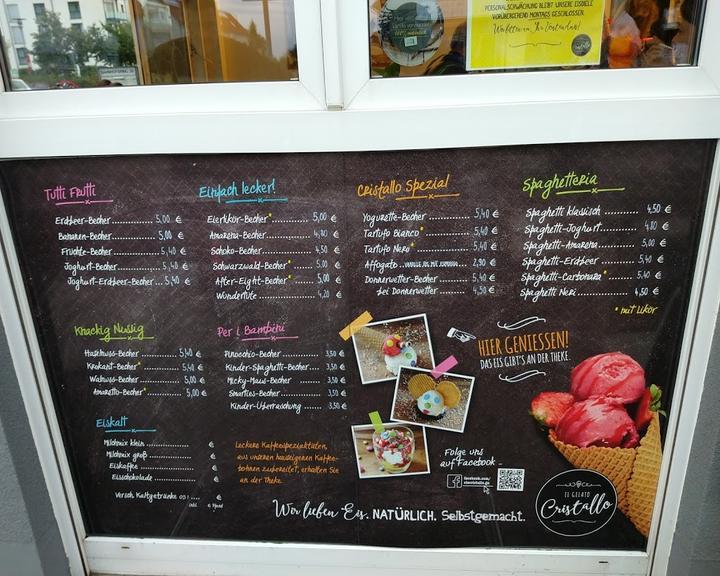 PERSONALSCHWÄCHUNG BLEIBT UNSERE EISDIELE
VORÜBERGEHEND MONTAGS GESCHLOSSEN.
Tutti Frutti
Erdbeer-Becher 5,00 €
Bananen-Becher 5,00 €
Früchte-Becher 5,40 €
Joghurt-Becher 5,40 €
Joghurt-Erdbeer-Becher 5,40 €
Einfach lecker!
Eierlikör-Becher* 5,00 €
Amarena-Becher 4,80 €
Schoko-Becher 4,50 €
Schwarzwald-Becher* 5,00 €
After-Eight-Becher* 5,00 €
Wundertüte 4,20 €
Cristallo Spezial
Yogurette-Becher 5,40 €
Tartufo Bianco* 5,40 €
Tartufo Nero* 5,40 €
Affogato 2,90 €
Donnerwetter-Becher 5,40 €
bei Donnerwetter 4,50 €
Spaghetteria
Spaghetti klassisch 4,50 €
Spaghetti-Joghurt 4,80 €
Spaghetti-Amarena 5,00 €
Spaghetti-Erdbeer 5,40 €
Spaghetti-Carbonara* 5,40 €
Spaghetti Neri 4,50 €
* mit Likör
Knackig Nussig
Haselnuss-Becher 5,40 €
Krokant-Becher* 5,40 €
Walnuss-Becher 5,00 €
Amaretto-Becher* 5,00 €
Per i Bambini
Pinocchio-Becher 3,50 €
Kinder-Spaghetti-Becher 3,50 €
Micky-Maus-Becher 3,50 €
Smarties-Becher 3,50 €
Kinder-Überraschung 3,50 €
HIER GENIESSEN!
DAS EIS GIBT'S AN DER THEKE.
Eiskalt
Milchmix klein €
Milchmix groß €
Eiskaffee €
Eisschokolade €
Versch. Kaltgetränke 0,5 l €
inkl. Pfand
Leckere Kaffeespezialitäten,
aus unseren hauseigenen Kaffee-
bohnen zubereitet, erhalten Sie
an der Theke.
Folge uns
auf Facebook
facebook.com/
Wir lieben Eis. NATÜRLICH. Selbstgemacht.
IL GELATO
Cristallo